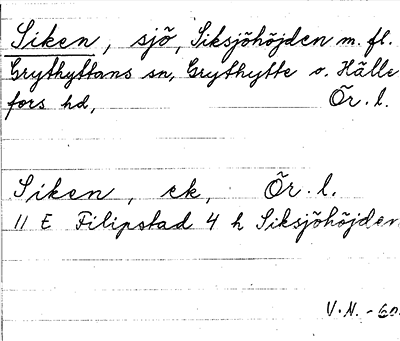 Siken, sjö, Siksjöhöjden m. fl.
Grythyttans sn, Grythytte o. Hälle
fors hd, Ör. l.
Siken, ek, Ör. l.
11 E Filipstad 4 h Siksjöhöjden
V.N. - 60.